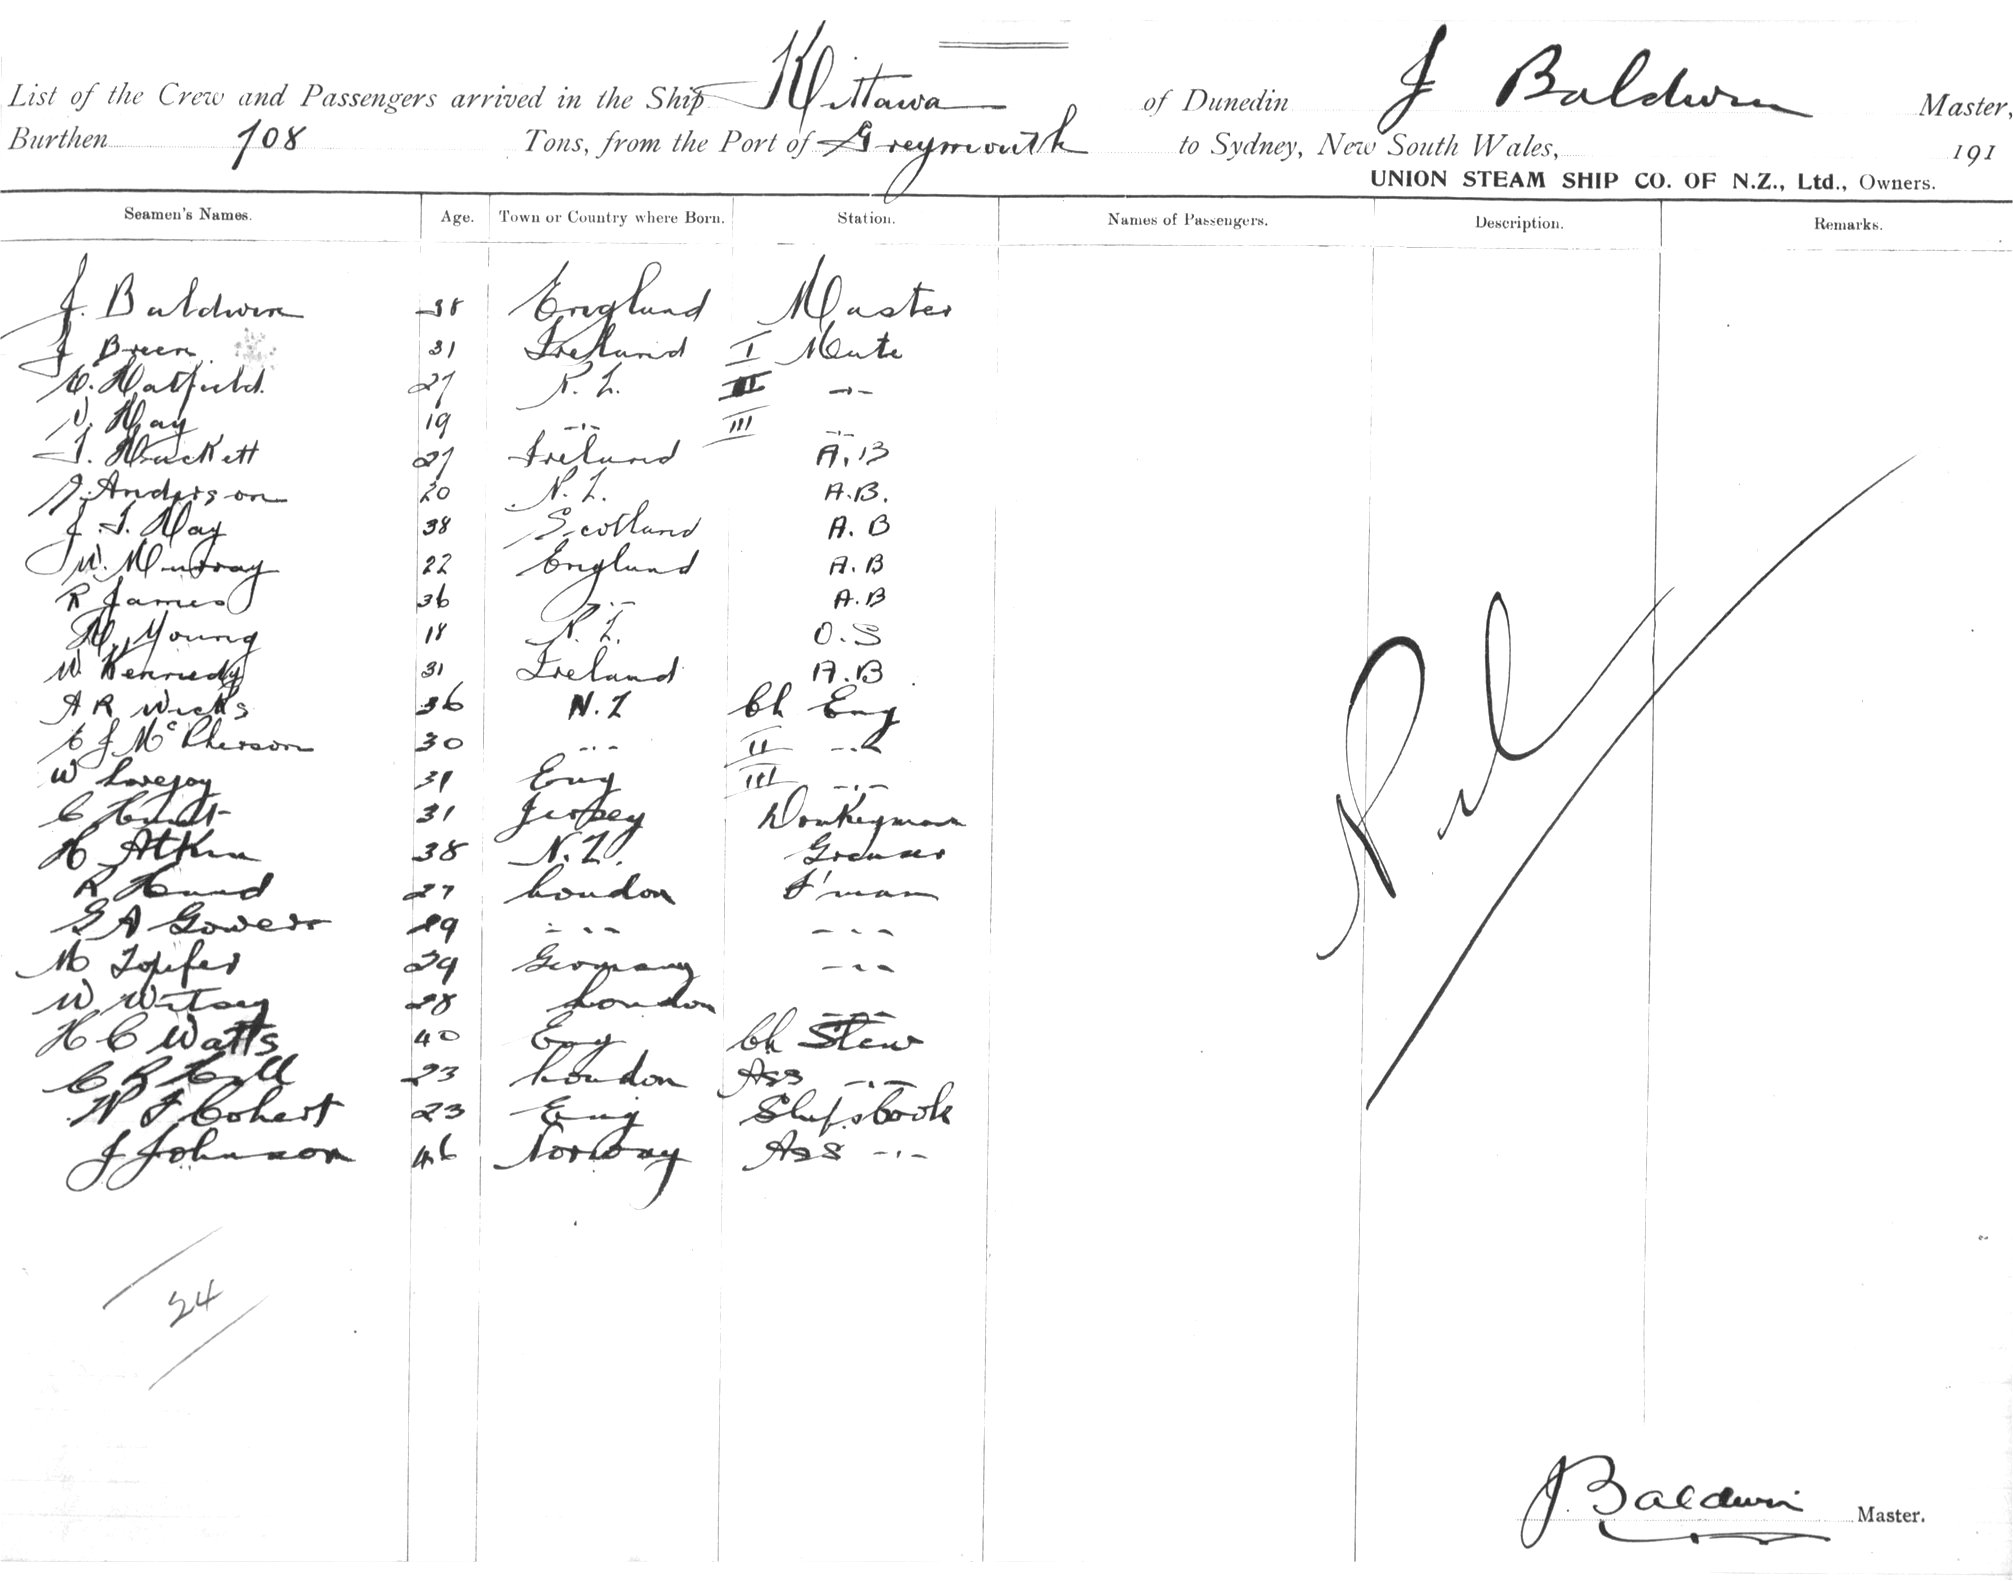 List of the Crew and Passengers arrived in the Ship Kittawa of Dunedin J Baldwin Master,
Burthen 708 Tons, from the Port of Greymouth to Sydney, New South Wales, 191
UNION STEAM SHIP CO. OF N.Z., Ltd., Owners.
Seamen's Names. Age. Town or Country where Born. Station. Names of Passengers. Description. Remarks.
J. Baldwin 38 England Master
J Breen 31 Ireland I Mate
C. Hatfield 27 N.Z. II -,-
Hay 19 -,- III -,-
T. Hackett 27 Ireland A.B
J. Anderson 20 N.Z. A.B.
J. T. Hay 38 Scotland A.B
W. Murray 22 England A.B
R James 36 -,- A.B
H. Young 18 N.Z. O.S
W. Kennedy 31 Ireland A.B
A R Wicks 36 N.Z Ch Eng
C J McPherson 30 -,- II -,-
W Lovejoy 31 Eng III -,-
C Hunt 31 Jersey Donkeyman
H Atkin 38 N.Z. Greaser
R Hand 27 London F'man
G A Gowers 29 -,- -,-
M Topfer 29 Germany -,-
W Witsey 28 London -,-
H C Watts 40 Eng Ch Stew
C R Hill 23 London Ass -,-
W F Cohert 23 Eng Ships Cook
J Johnson 46 Norway Ass -,-
Nil
24
J. Baldwin Master.